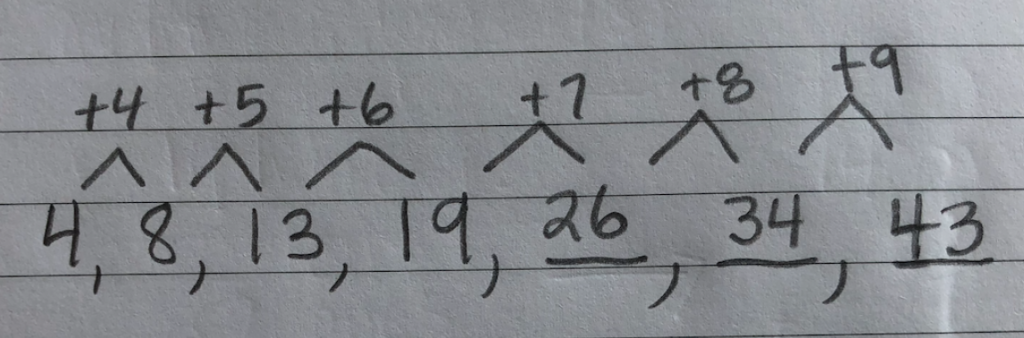 +4 +5 +6 +7 +8 +9
4, 8, 13, 19, 26, 34, 43